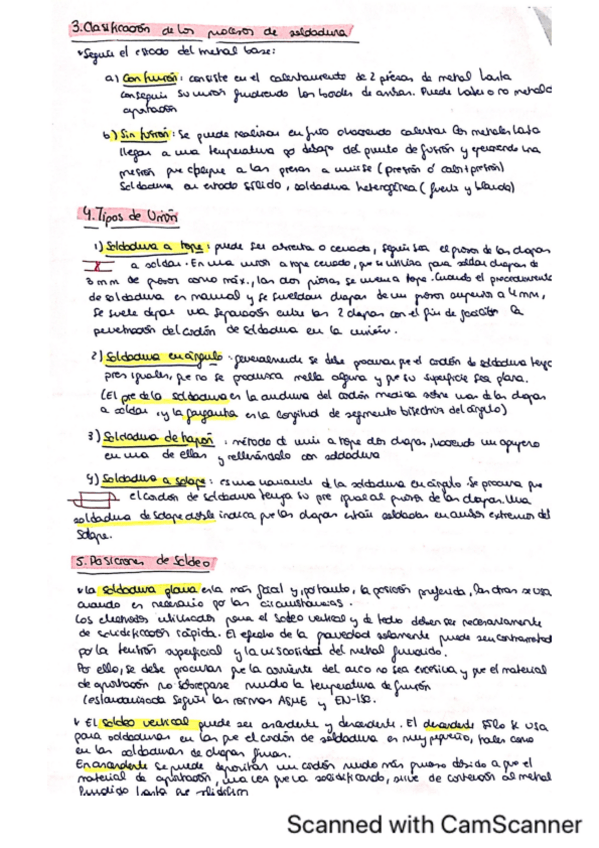 3. Clasificación de los procesos de soldadura
Según el estado del metal base:
a) Con fusión: consiste en el calentamiento de 2 piezas de metal hasta
conseguir su unión fundiendo los bordes de ambas. Puede haber o no metal de
aportación
b) Sin fusión: Se puede realizar en frío o haciendo calentar los metales hasta
llegar a una temperatura por debajo del punto de fusión y ejerciendo una
presión que obligue a las piezas a unirse (presión ó calor+presión)
Soldadura en estado sólido, soldadura heterogénea (fuerte y blanda)
4. Tipos de Unión
1) Soldadura a tope: puede ser abierta o cerrada, según sea el grosor de las chapas
a soldar. En una unión a tope cerrado, que se utiliza para soldar chapas de
3 mm de grosor como máx., las dos piezas se unen a tope. Cuando el procedimiento
de soldadura es manual y se sueldan chapas de un grosor superior a 4 mm,
se suele dejar una separación entre las 2 chapas con el fin de facilitar la
penetración del cordón de soldadura en la unión.
2) Soldadura en ángulo: generalmente se debe procurar que el cordón de soldadura tenga
pies iguales, que no se produzca mella alguna y que su superficie sea plana.
(El pie de la soldadura es la anchura del cordón medida sobre una de las chapas
a soldar, y la garganta es la longitud de segmento bisectriz del ángulo)
3) Soldadura de tapón: método de unir a tope dos chapas, haciendo un agujero
en una de ellas y rellenándolo con soldadura
4) Soldadura a solape: es una variante de la soldadura en ángulo. Se procura que
el cordón de soldadura tenga su pie igual al grosor de las chapas. Una
soldadura de solape doble indica que las chapas están soldadas en ambos extremos del
solape.
5. Posiciones de Soldeo
La soldadura plana es la más fácil y, por tanto, la posición preferida, las otras se usa
cuando es necesario por las circunstancias.
Los electrodos utilizados para el soldeo vertical y de techo deben ser necesariamente
de solidificación rápida. El efecto de la gravedad solamente puede ser contrarrestado
por la tensión superficial y la viscosidad del metal fundido.
Por ello, se debe procurar que la corriente del arco no sea excesiva, y que el material
de aportación no sobrepase mucho la temperatura de fusión
(estandarizada según las normas ASME y EN-ISO.
El soldeo vertical puede ser ascendente y descendente. El descendente sólo se usa
para soldaduras en las que el cordón de soldadura es muy pequeño, tales como
en las soldaduras de chapas finas.
En ascendente se puede depositar un cordón mucho más grueso debido a que el
material de aportación, una vez que va solidificando, sirve de contención al metal
fundido hasta que
Scanned with CamScanner